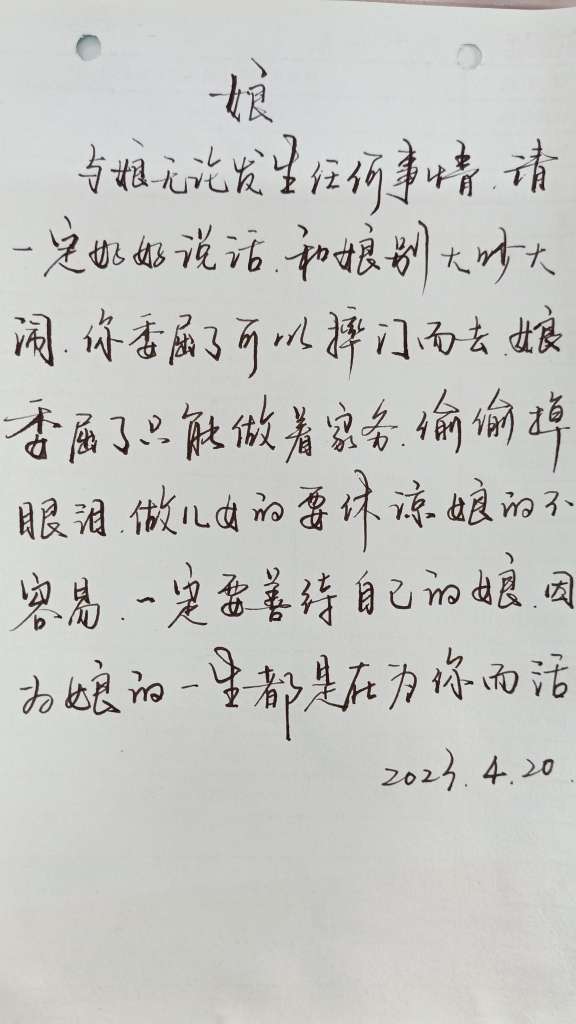 娘
与娘无论发生任何事情.请
一定好好说话.和娘别大吵大
闹.你委屈了可以摔门而去.娘
委屈了只能做着家务.偷偷掉
眼泪.做儿女的要体谅娘的不
容易.一定要善待自己的娘.因
为娘的一生都是在为你而活
2023.4.20.